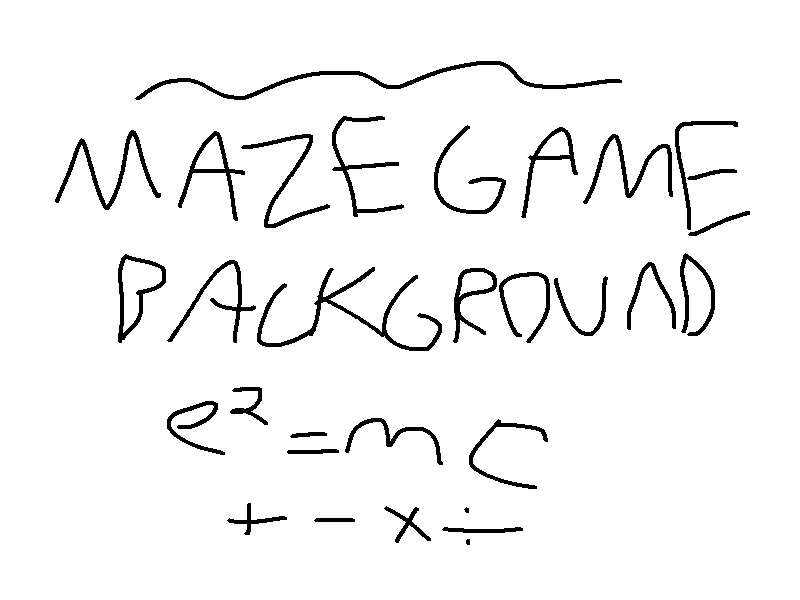 MAZE GAME
BACKGROUND
e²=mc
+ - × ÷